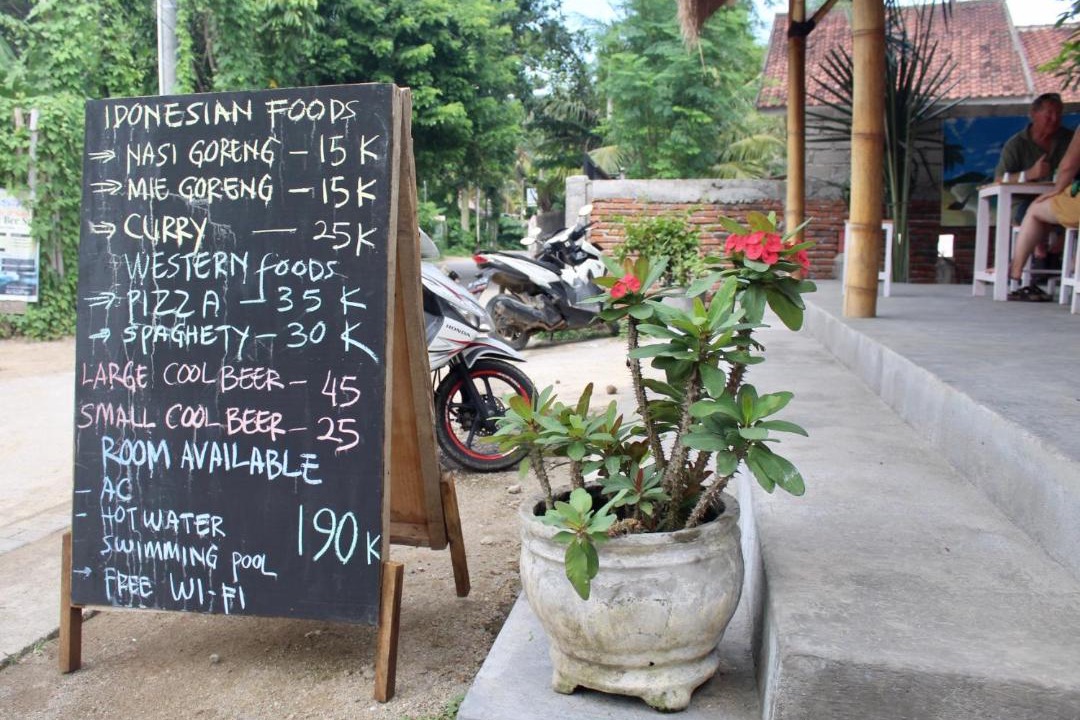 IDONESIAN FOODS
⇒ NASI GORENG – 15 K
⇒ MIE GORENG – 15K
⇒ CURRY — 25K
WESTERN foods
⇒ PIZZA – 35 K
→ SPAGHETY – 30 K
LARGE COOL BEER – 45
SMALL COOL BEER – 25
ROOM AVAILABLE
– AC
– HOT WATER 190K
SWIMMING POOL
→ FREE WI-FI
HONDA